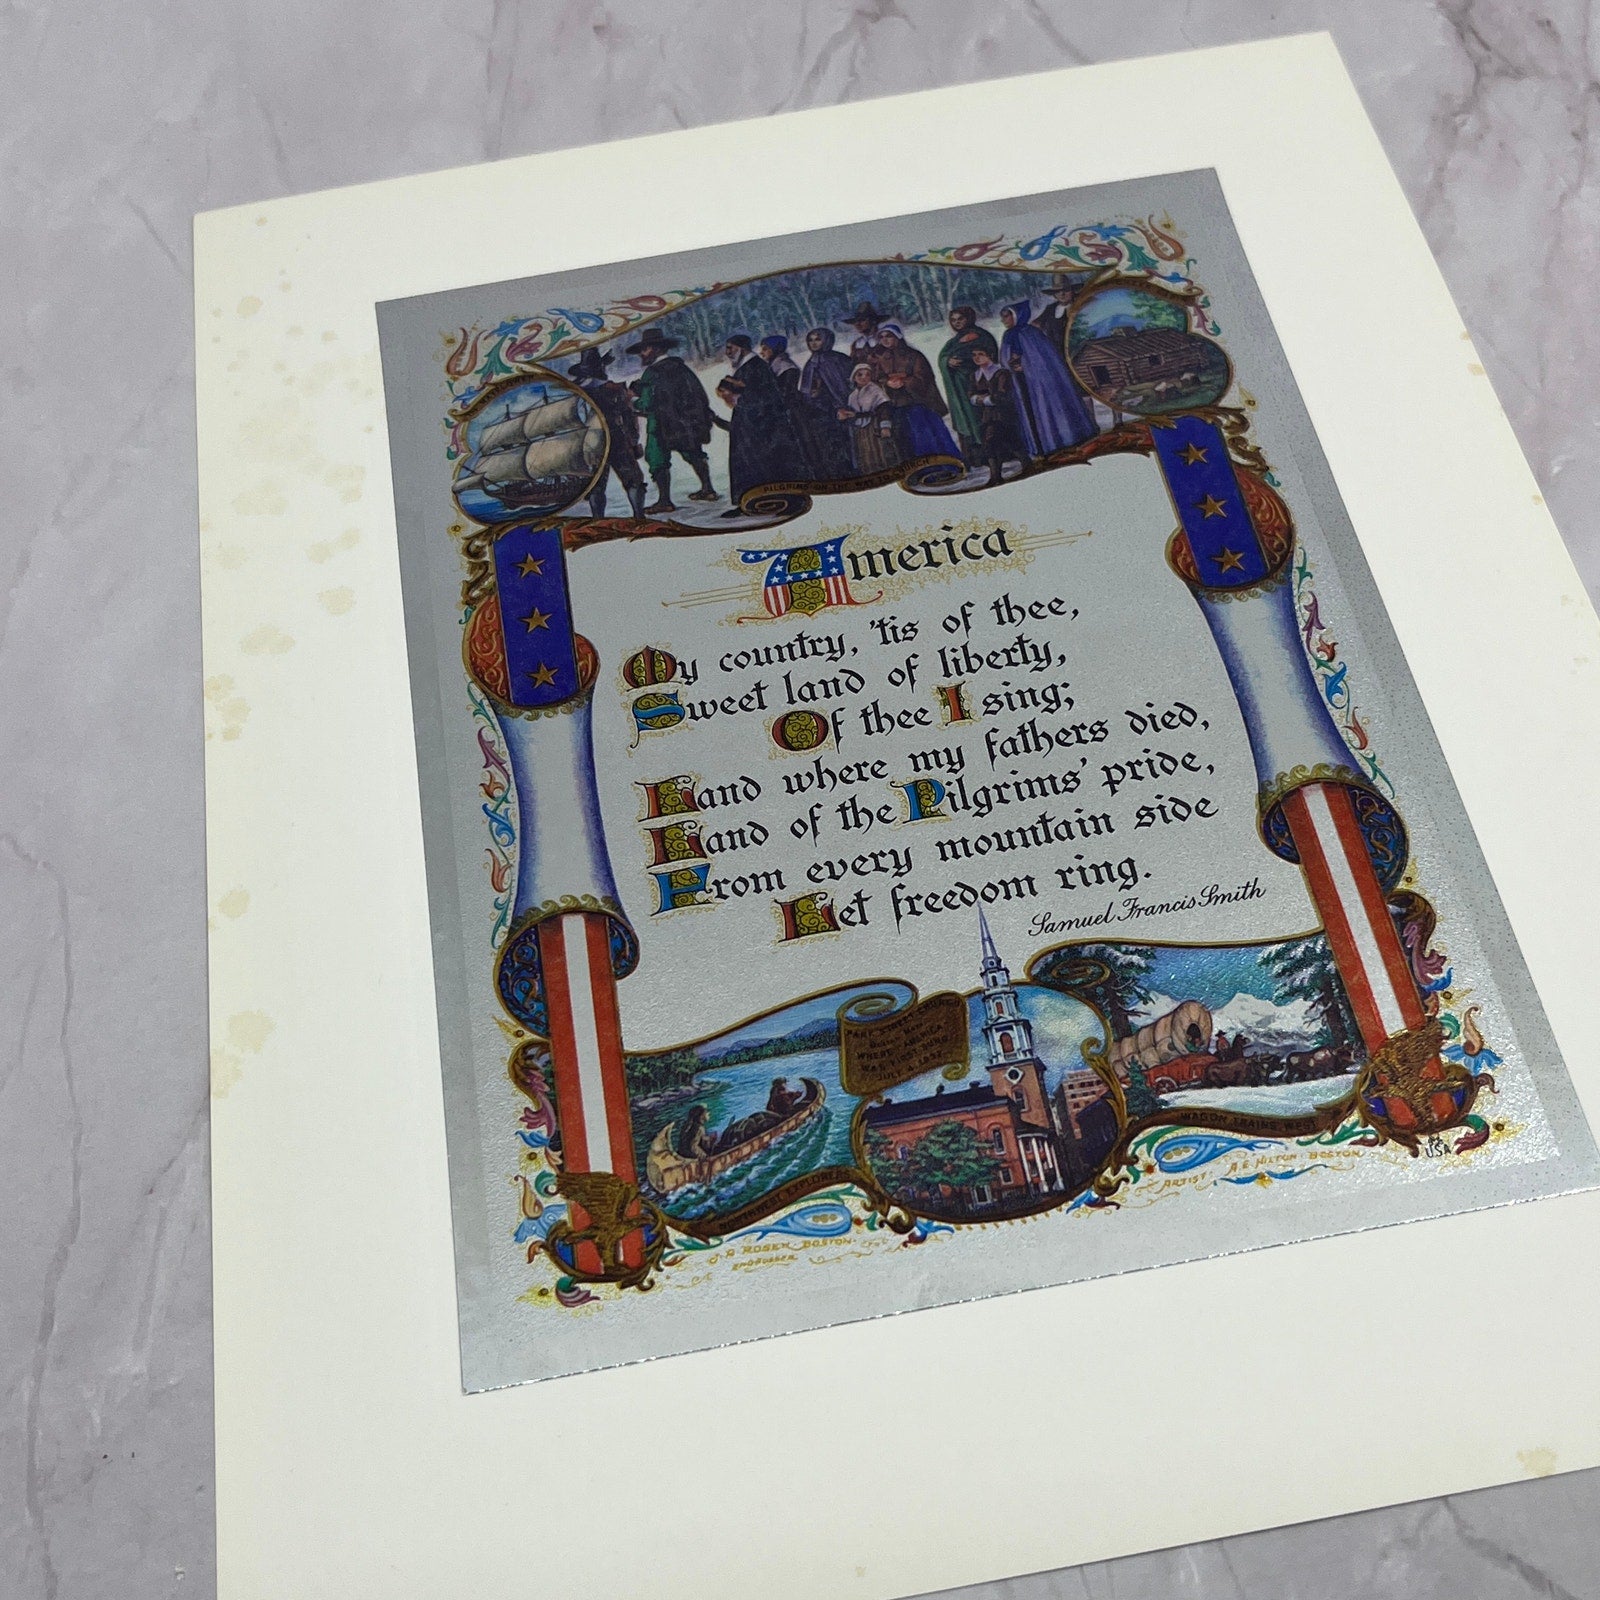 MAYFLOWER
PILGRIMS ON THE WAY TO CHURCH
America
My country, 'tis of thee,
Sweet land of liberty,
Of thee I sing;
Land where my fathers died,
Land of the Pilgrims' pride,
From every mountain side
Let freedom ring.
Samuel Francis Smith
PARK STREET CHURCH
Boston Mass
WHERE "AMERICA"
WAS FIRST SUNG
JULY 4, 1832
NORTHWEST EXPLORERS
WAGON TRAINS WEST
USA
J. A. ROSEN BOSTON
ENGROSSER
ARTIST: A. E. HILTON. BOSTON